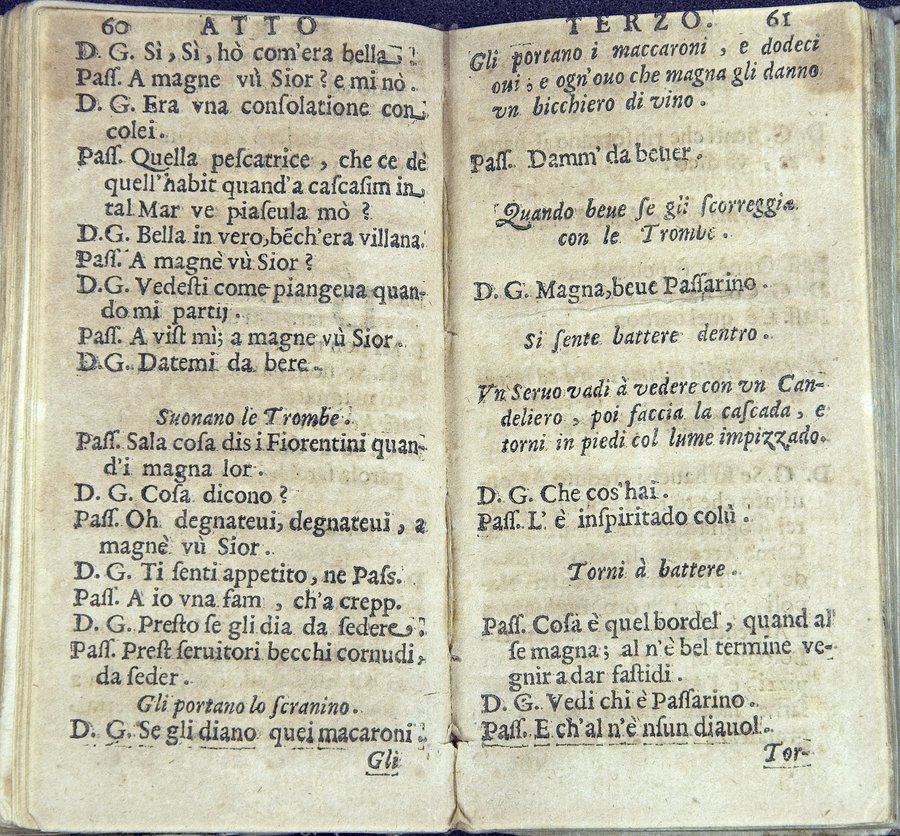 60 ATTO
D. G. Sì, Sì, hò com'era bella.
Paſſ. A magne vù Sior? e mi nò.
D. G. Era vna conſolatione con
colei.
Paſſ. Quella peſcatrice, che ce dè
quell'habit quand'a caſcaſim in
tal Mar ve piaſeula mò?
D.G. Bella in vero, bẽch'era villana.
Paſſ. A magnè vù Sior?
D. G. Vedeſti come piangeua quan-
do mi partij.
Paſſ. A viſt mì; a magne vù Sior.
D. G. Datemi da bere.
Suonano le Trombe.
Paſſ. Sala coſa dis i Fiorentini quan-
d'i magna lor.
D. G. Coſa dicono?
Paſſ. Oh degnateui, degnateui, a
magnè vù Sior.
D. G. Ti ſenti appetito, ne Paſs.
Paſſ. A io vna fam, ch'a crepp.
D. G. Preſto ſe gli dia da ſedere.
Paſſ. Preſt ſeruitori becchi cornudi,
da ſeder.
Gli portano lo ſcranino.
D. G. Se gli diano quei macaroni.
Gli
TERZO. 61
Gli portano i maccaroni, e dodeci
oui; e ogn'ouo che magna gli danno
vn bicchiero di vino.
Paſſ. Damm' da beuer.
Quando beue ſe gli ſcorreggia
con le Trombe.
D. G. Magna, beue Paſſarino.
Si ſente battere dentro.
Vn Seruo vadi à vedere con vn Can-
deliero, poi faccia la caſcada, e
torni in piedi col lume impizzado.
D. G. Che cos'hai.
Paſſ. L' è inſpiritado colù.
Torni à battere.
Paſſ. Coſa è quel bordel, quand al
ſe magna; al n'è bel termine ve-
gnir a dar faſtidi.
D. G. Vedi chi è Paſſarino.
Paſſ. E ch'al n'è nſun diauol.
Tor-